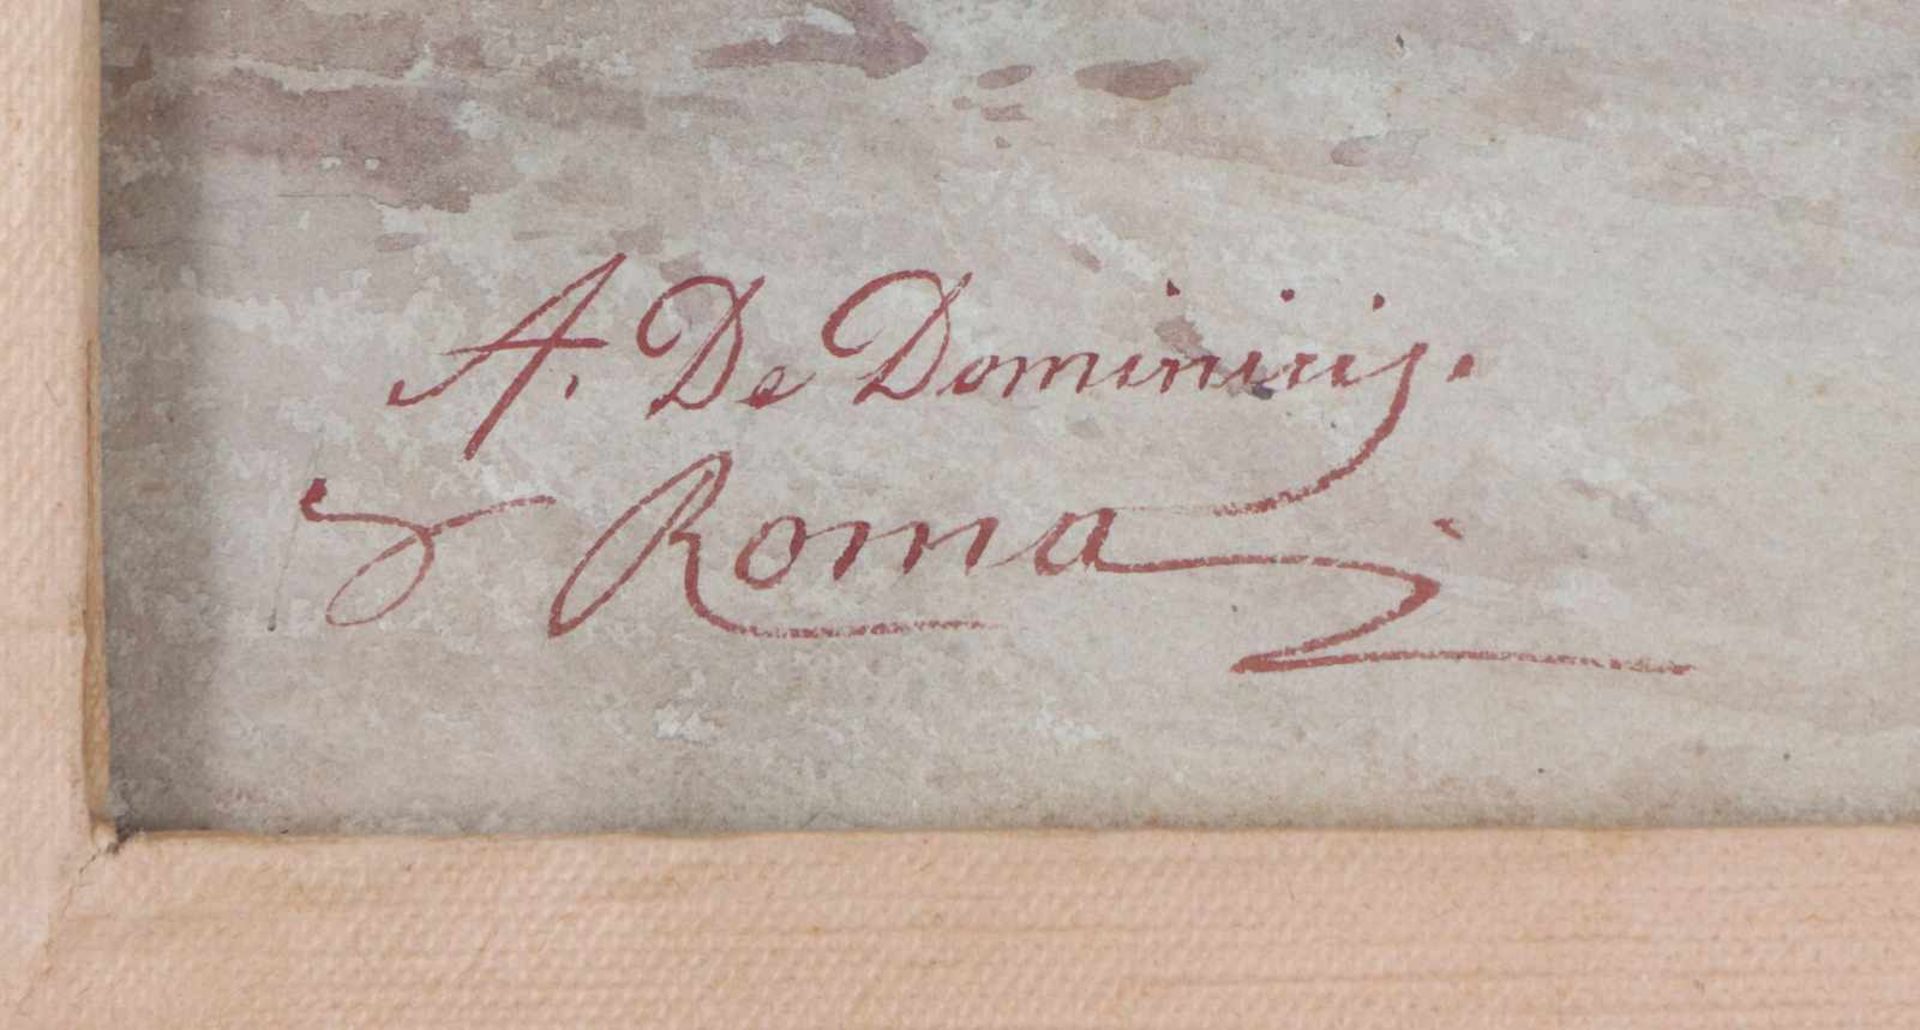 A. De Dominicis.
Roma